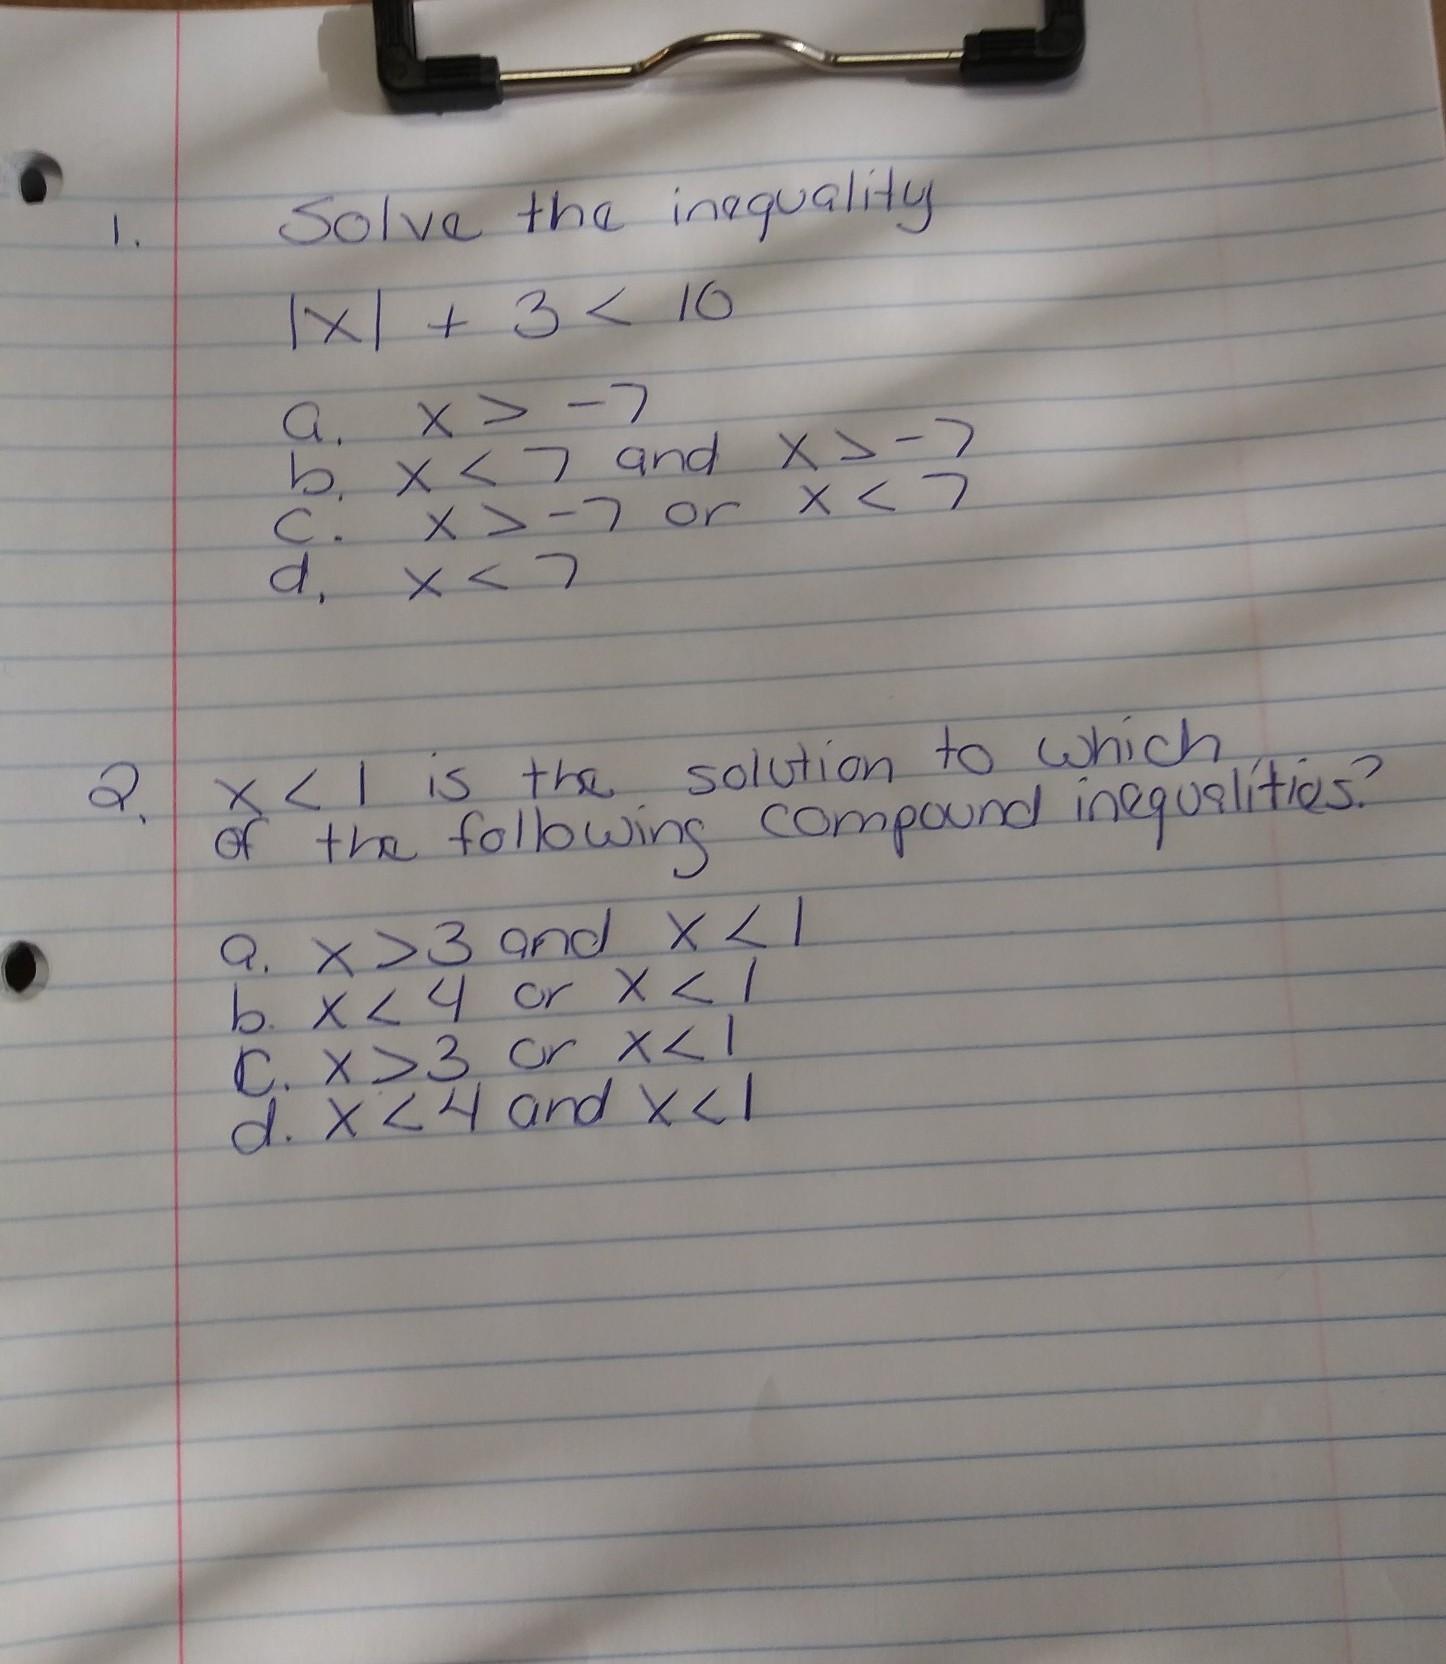 1. Solve the inequality
|x| + 3 < 10
a. x > -7
b. x < 7 and x > -7
c. x > -7 or x < 7
d. x < 7
2. x < 1 is the solution to which
of the following compound inequalities?
a. x > 3 and x < 1
b. x < 4 or x < 1
c. x > 3 or x < 1
d. x < 4 and x < 1